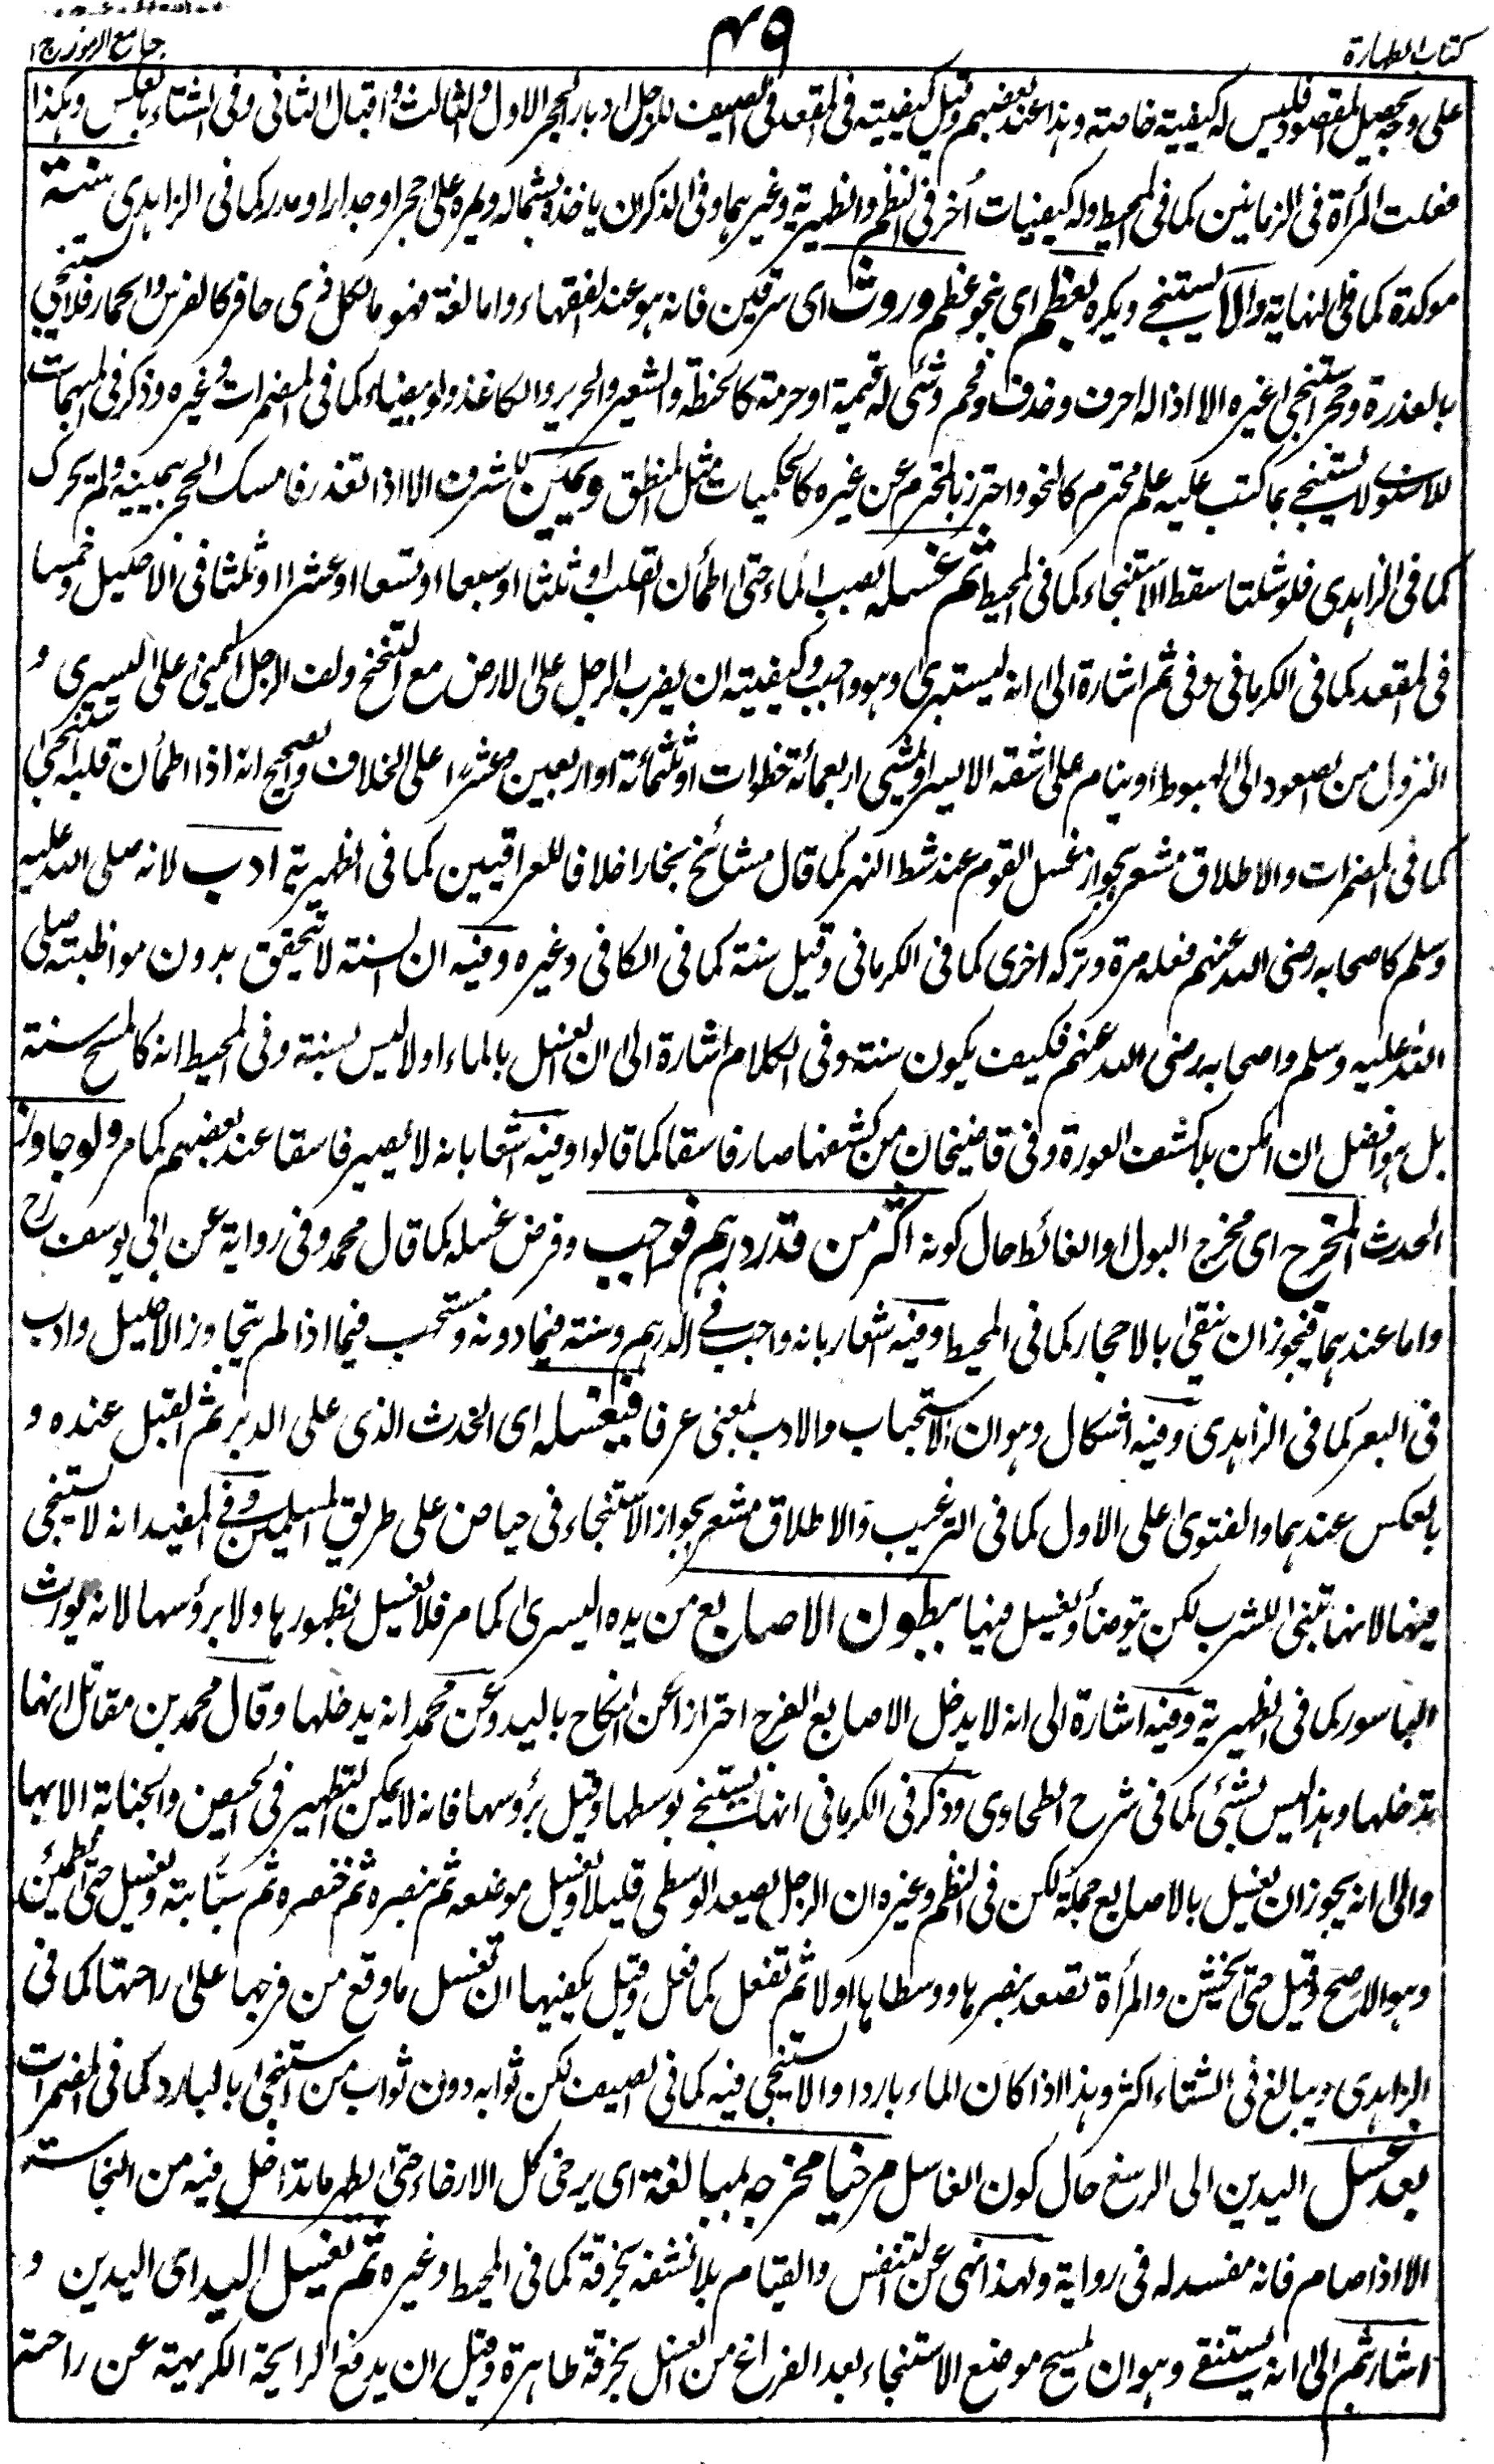 جامع الرموز ج ١
٤٩
كتاب الطهارة
على وجه يحصيل المقصود فليس له كيفية خاصة وهذا عند بعضهم وقيل كيفيته في المقعد في الصيف للرجل ادبار الحجر الاول والثالث واقبال الثاني وفي الشتاء بالعكس وهكذا
فعلت المرأة في الزمانين كما في المحيط وله كيفيات أخر في النظم والظهيرية وغيرهما وفي الذكر ان ياخذه بشماله ويمره على حجر او جدار او مدر كما في الزاهدي سنة
موكدة كما في النهاية والا يستنجي ويكره بعظم اي نحو عظم وروث اي سرقين فانه هو عند الفقهاء واما لغة فهو ما لكل ذي حافر كالفرس والحمار فلا يستنجي
بالعذرة وحجر استنجى غيره الا اذا له احرف وخذف وفحم وشئ له قيمة او حرمة كالحنطة والشعير والحرير والكاغذ ولو بيضاء كما في المضمرات وغيره وذكر في المهمات
للاسنوي لا يستنجي بما كتب عليه علم محترم كالنحو واحترز بالمحترم عن غيره كالحكميات مثل المنطق ويمين للشرف الا اذا تعذر فامسك الحجر بيمينه ولم يحرك
كما في الزاهدي فلو شلتا سقط الاستنجاء كما في المحيط ثم غسله بصب الماء حتى اطمأن القلب او ثلثا او سبعا او تسعا او عشرا او ثلثا في الاحليل وخمسا
في المقعد كما في الكرماني وفي ثم اشارة الى انه يستبرئ وهو واجب وكيفيته ان يضرب الرجل على الارض مع التنحنح ولف الرجل اليمنى على اليسرى و
النزول من الصعود الى الهبوط او ينام على شقه الايسر او يمشي اربعمائة خطوات او ثلثمائة او اربعين او عشرا على الخلاف والصحيح انه اذا اطمأن قلبه يستنجي
كما في المضمرات والاطلاق مشعر بجواز غسل القوم عند شط النهر كما قال مشائخ بخارا خلافا للعراقيين كما في الظهيرية ادب لانه صلى الله عليه
وسلم كاصحابه رضى الله عنهم فعله مرة وتركه اخرى كما في الكرماني وقيل سنة كما في الكافي وغيره وفيه ان السنة لا تتحقق بدون مواظبته صلى
الله عليه وسلم واصحابه رضى الله عنهم فكيف يكون سنة وفي الكلام اشارة الى ان الغسل بالماء اولا ليس بسنة وفي المحيط انه كالمسح سنة
بل هو افضل ان امكن بلا كشف العورة وفي قاضيخان من كشفها صار فاسقا كما قالوا وفيه اشعار بانه لا يصير فاسقا عند بعضهم كما مر ولو جاوز
الحدث المخرج اي مخرج البول او الغائط حال كونه اكثر من قدر درهم فواجب وفرض غسله كما قال محمد وفي رواية عن ابي يوسف رح
واما عندهما فيجوز ان ينقى بالاحجار كما في المحيط وفيه اشعار بانه واجب في الدرهم وسنة فيما دونه ومستحب فيما اذا لم يتجاوز الاحليل وادب
في البعر كما في الزاهدي وفيه اشكال وهو ان الاستحباب والادب بمعنى عرفا فيغسله اي الحدث الذي على الدبر ثم القبل عنده و
بالعكس عندهما والفتوى على الاول كما في الترغيب والاطلاق مشعر بجواز الاستنجاء في حياض على طريق المسلمين وفي المفيد انه لا يستنجي
منها لانها تبنى للشرب لكن يتوضأ ويغسل منها ببطون الاصابع من يده اليسرى كما مر فلا يغسل بظهورها ولا برؤسها لانه يورث
الباسور كما في الظهيرية وفيه اشارة الى انه لا يدخل الاصابع الفرج احترازا عن النكاح باليد وعن محمد انه يدخلها وقال محمد بن مقاتل انها
تدخلها وهذا ليس بشئ كما في شرح الطحاوي وذكر في الكرماني انها تستنجي بوسطها وقيل برؤسها فانه لا يمكن التطهير في الحيض والجنابة الا بها
والى انه يجوز ان يغسل بالاصابع جملة لكن في النظم وغيره ان الرجل يصعد الوسطى قليلا ويغسل موضعه ثم بنصره ثم خنصره ثم سبابته ويغسل حتى يطمئن
وهو الاصح وقيل حتى يخشن والمرأة تصعد بنصرها ووسطاها اولا ثم تفعل كما فعل وقيل يكفيها ان تغسل ما وقع من فرجها على راحتها كما في
الزاهدي ويبالغ في الشتاء اكثر وهذا اذا كان الماء باردا والا يستنجي فيه كما في الصيف لكن ثوابه دون ثواب من استنجى بالبارد كما في المضمرات
بعد غسل اليدين الى الرسغ حال كون الغاسل مرخيا مخرجه مبالغة اي يرخى كل الارخاء حتى يطهر ما تداخل فيه من النجاسة
الا اذا صام فانه مفسد له في رواية ولهذا نهى عن التنفس والقيام بلا نشفه بخرقة كما في المحيط وغيره ثم تغسيل اليد اي اليدين و
اشار ثم الى انه يستنقي وهو ان يمسح موضع الاستنجاء بعد الفراغ من الغسل بخرقة طاهرة وقيل ان يدفع الرايحة الكريهة عن راحته